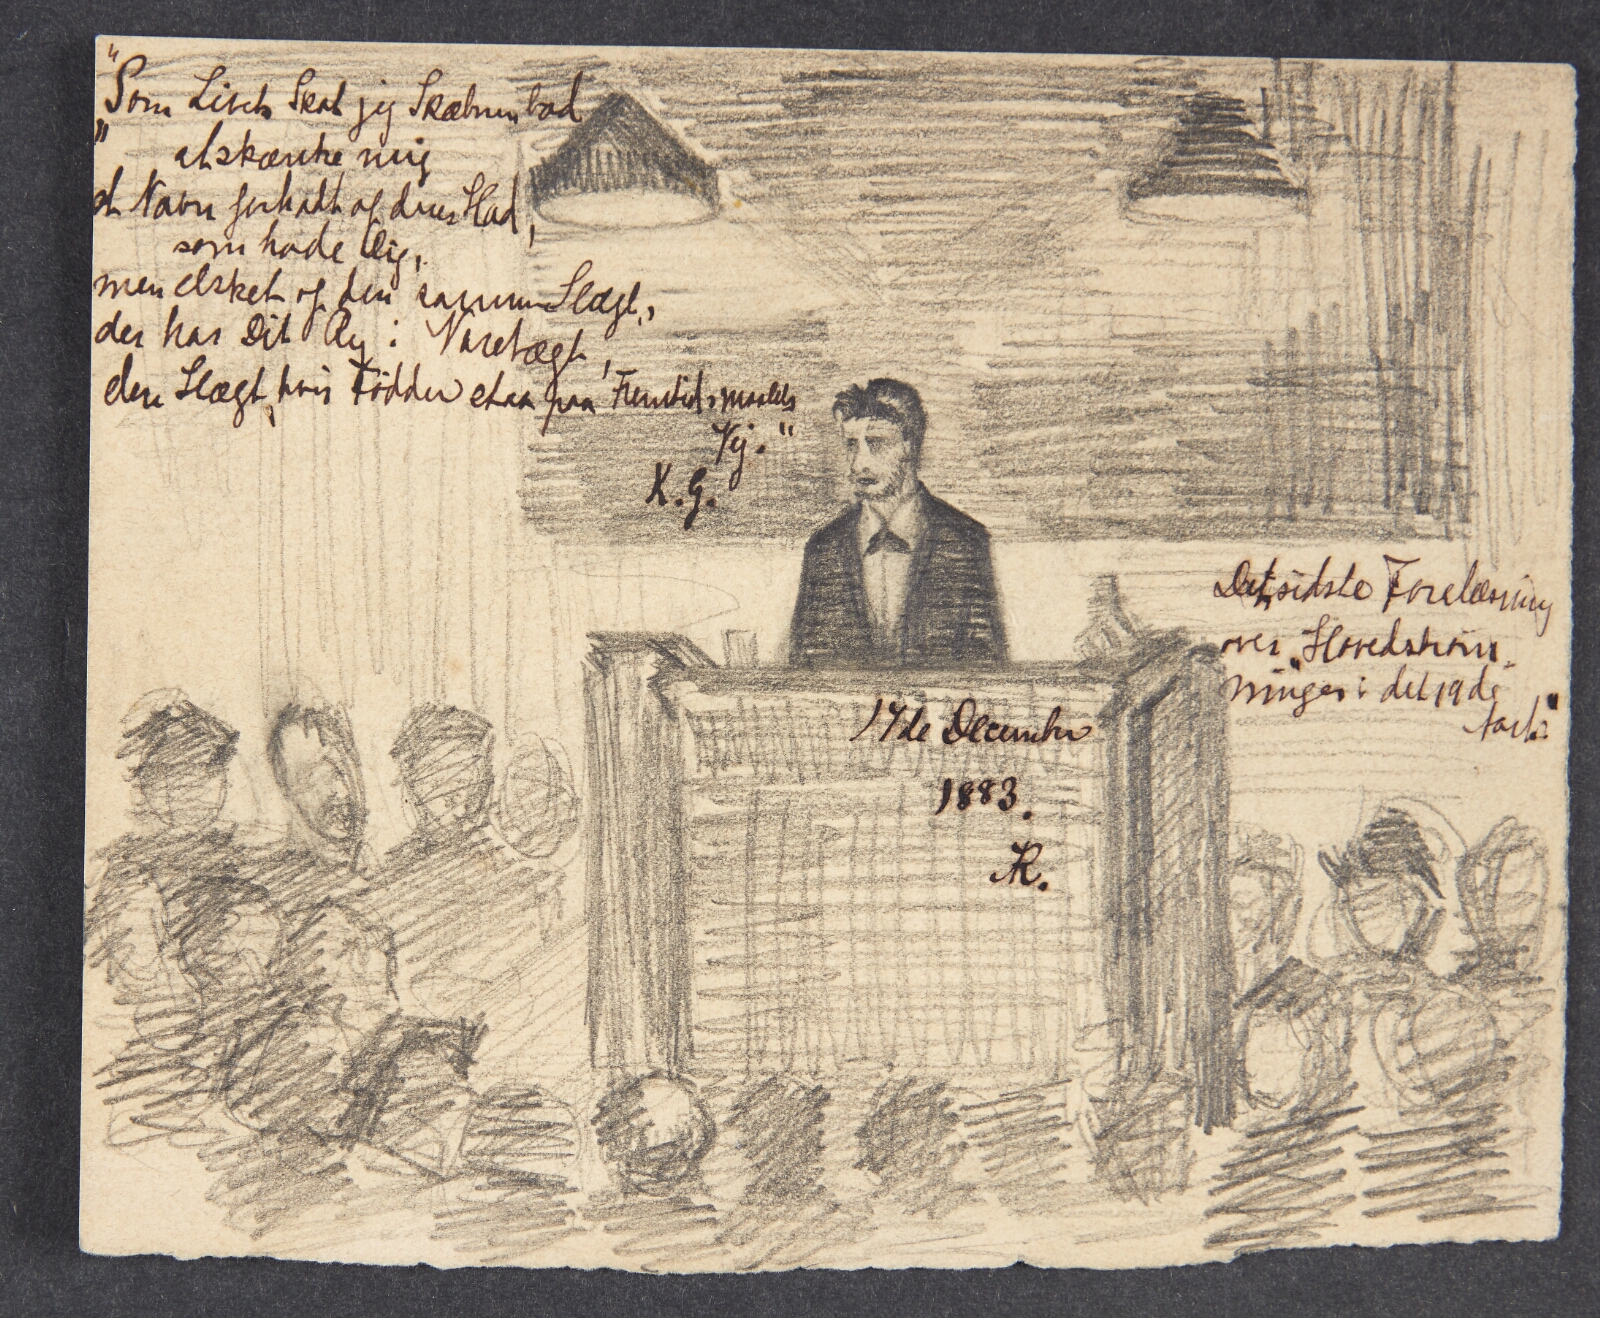 "Som Livets Skat jeg Skæbnen bad
" at skænke mig
et Navn forhadt af deres Had,
som hade Dig,
men elsket af den samme Slægt,
der har Dit Ry i Varetægt,
den Slægt, hvis Fødder staa paa Fremtidsmaalets
Vej."
K. G.
Det sidste Forelæsning
over "Hovedstrøm-
ninger i det 19de
Aarh."
17de December
1883.
R.